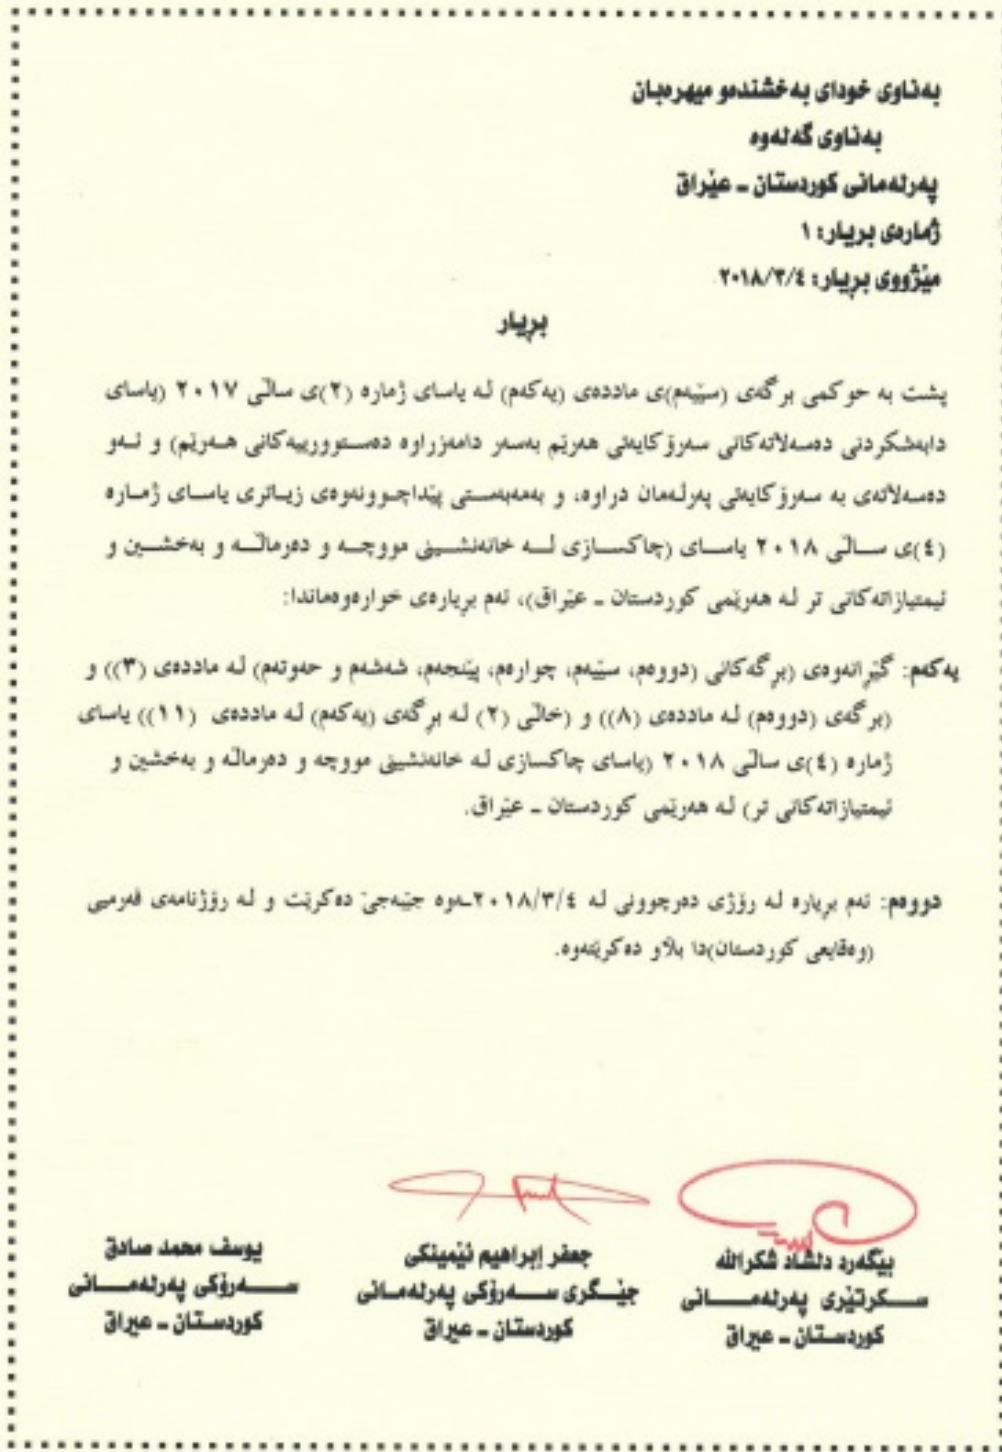 بەناوی خودای بەخشندەو میهرەبان
بەناوی گەلەوە
پەرلەمانی کوردستان ـ عێراق
ژمارەی بڕیار: ١
مێژووی بڕیار: ٢٠١٨/٣/٤
بڕیار
پشت بە حوکمی برگەی (سێیەم)ی ماددەی (یەکەم) لە یاسای ژمارە (٢)ی ساڵی ٢٠١٧ (یاسای
دابەشکردنی دەسەلاتەکانی سەرۆکایەتی هەرێم بەسەر دامەزراوە دەستوورییەکانی هەرێم) و ئەو
دەسەلاتەی بە سەرۆکایەتی پەرلەمان دراوە، و بەمەبەستی پێداچوونەوەی زیاتری یاسای ژمارە
(٤)ی ساڵی ٢٠١٨ یاسای (چاکسازی لە خانەنشینی مووچە و دەرماڵە و بەخشین و
ئیمتیازاتەکانی تر لە هەرێمی کوردستان ـ عێراق)، ئەم بڕیارەی خوارەوەماندا:
یەکەم: گێڕانەوەی (برگەکانی (دووەم، سێیەم، چوارەم، پێنجەم، شەشەم و حەوتەم) لە ماددەی (٣)) و
(برگەی (دووەم) لە ماددەی (٨)) و (خاڵی (٢) لە برگەی (یەکەم) لە ماددەی (١١)) یاسای
ژمارە (٤)ی ساڵی ٢٠١٨ (یاسای چاکسازی لە خانەنشینی مووچە و دەرماڵە و بەخشین و
ئیمتیازاتەکانی تر) لە هەرێمی کوردستان ـ عێراق.
دووەم: ئەم بڕیارە لە رۆژی دەرچوونی لە ٢٠١٨/٣/٤ـەوە جێبەجێ دەکرێت و لە رۆژنامەی فەرمیی
(وەقایعی کوردستان)دا بلاو دەکرێتەوە.
بێگەرد دلشاد شکراللە
سکرتێری پەرلەمانی
کوردستان ـ عیراق
جعفر إبراهیم ئێمینکی
جێگری سەرۆکی پەرلەمانی
کوردستان ـ عیراق
یوسف محمد صادق
سەرۆکی پەرلەمانی
کوردستان ـ عیراق